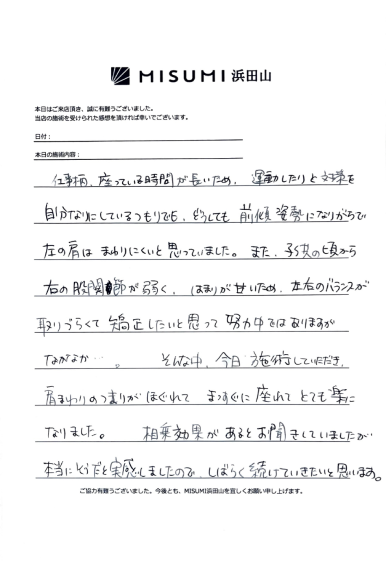 MISUMI 浜田山
本日はご来店頂き、誠に有難うございました。
当店の施術を受けられた感想を頂ければ幸いでございます。
日付：
本日の施術内容：
仕事柄、座っている時間が長いため、運動したりと対策を
自分なりにしているつもりでも、どうしても前傾姿勢になりがちで
左の肩はまわりにくいと思っていました。また、子供の頃から
右の股関節が弱く、はまりが甘いため、左右のバランスが
取りづらくて矯正したいと思って努力中ではありますが
なかなか…。そんな中、今日施術していただき、
肩まわりのつまりがほぐれてまっすぐに座れてとても楽に
なりました。相乗効果があるとお聞きしていましたが
本当にそうだと実感しましたので、しばらく続けていきたいと思います。
ご協力有難うございました。今後とも、MISUMI浜田山を宜しくお願い申し上げます。